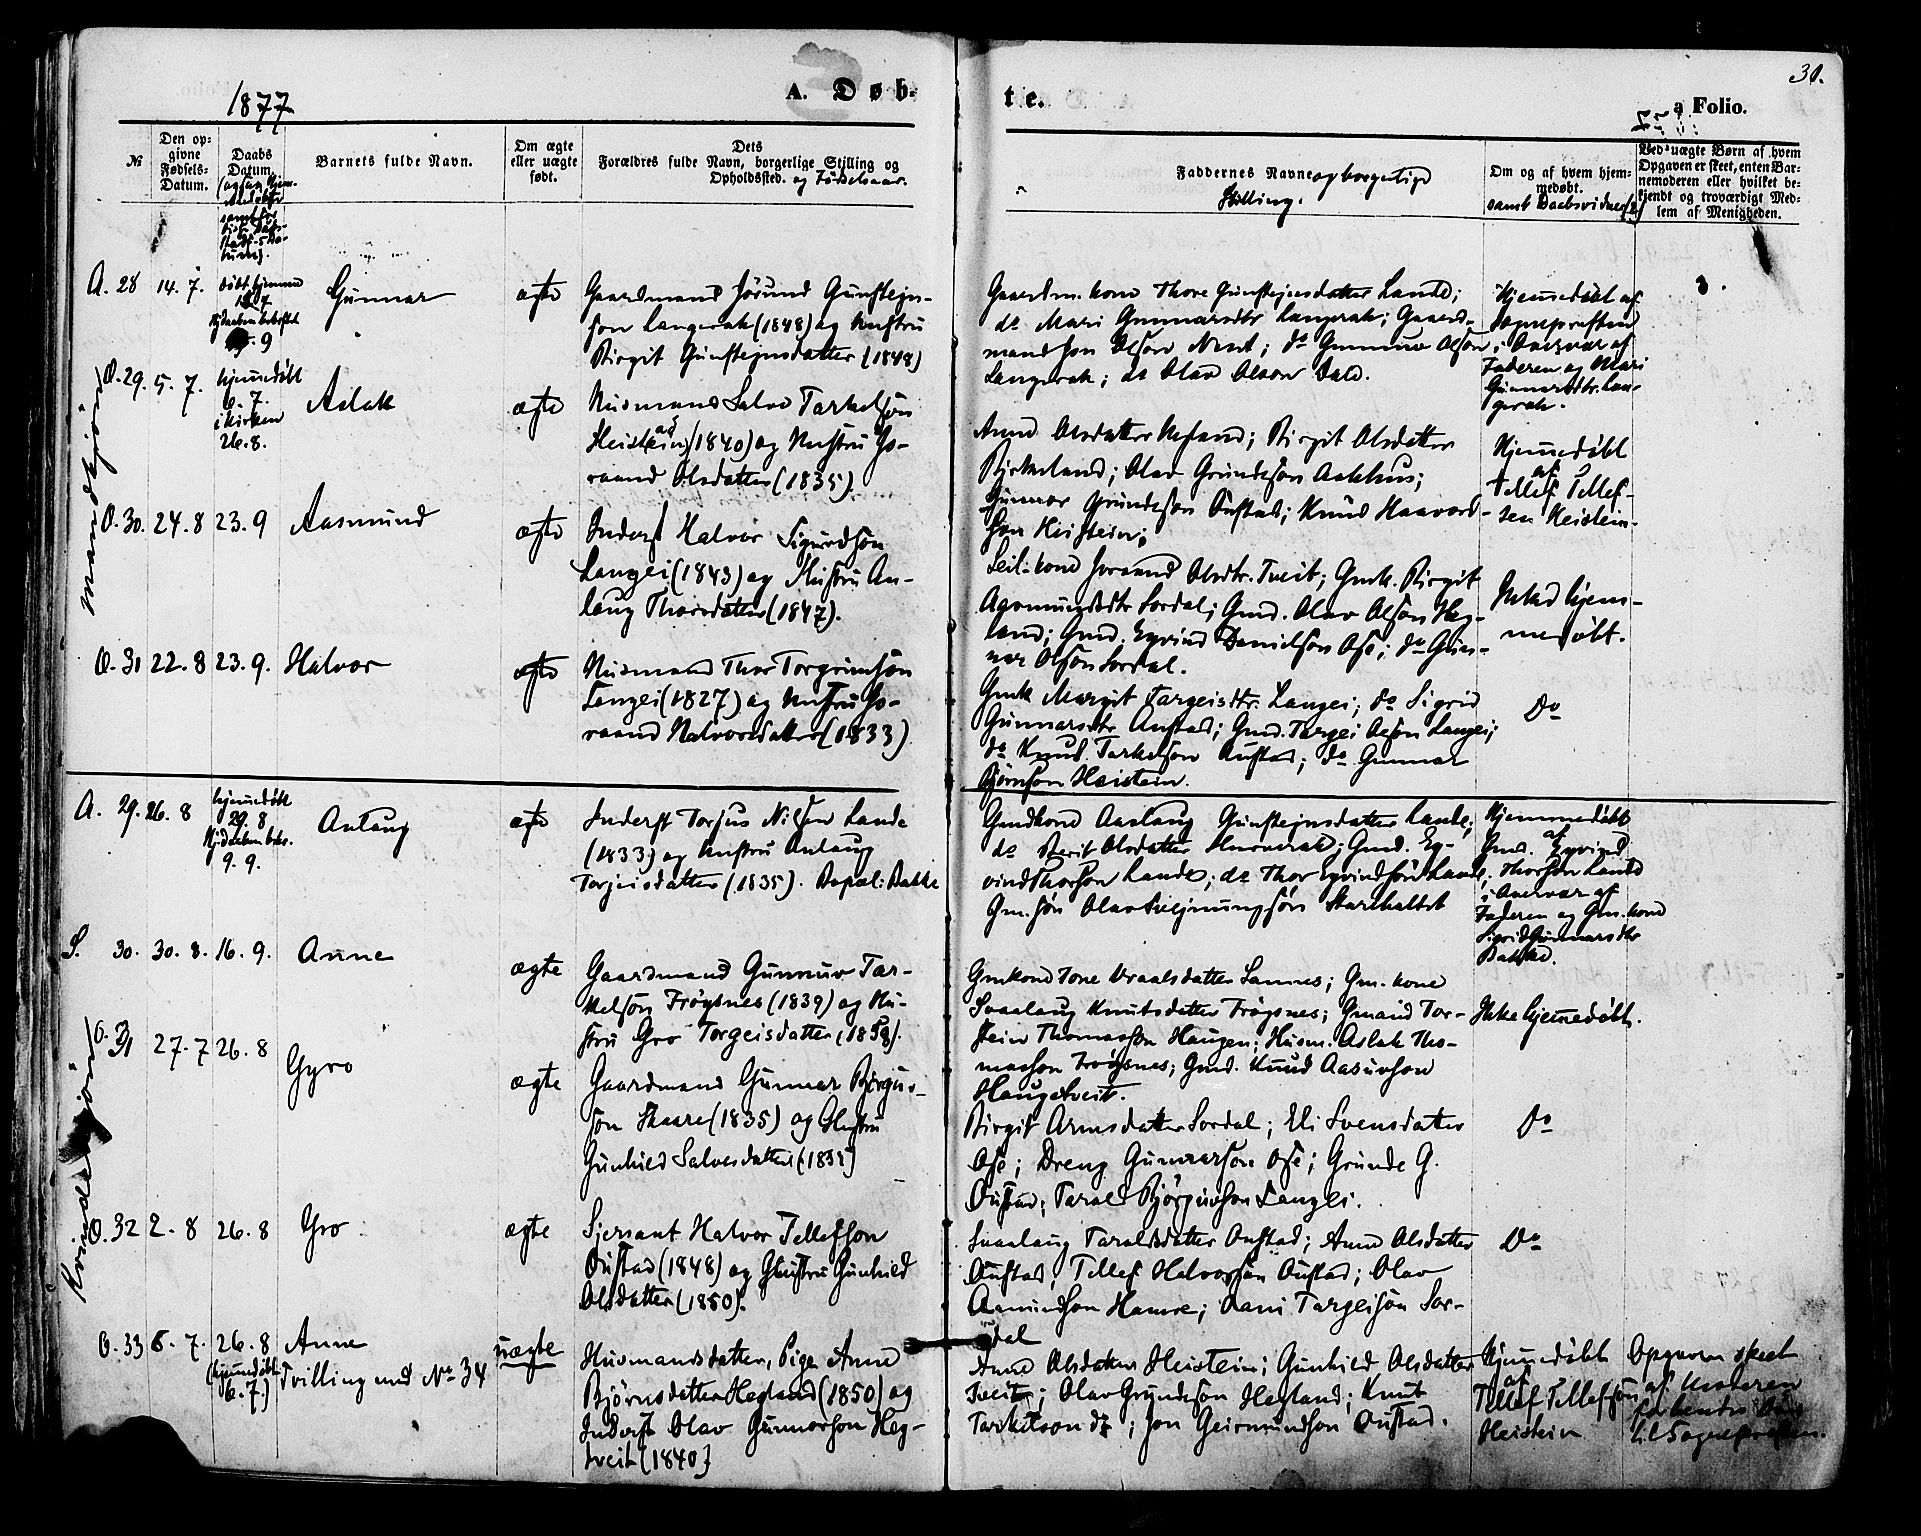 1877
A. Døb-
te.
31.
a Folio.
№
Den op-
givne
Fødsels-
Datum.
Daabs
Datum.
Barnets fulde Navn.
Om ægte
eller uægte
født.
Dets
Forældres fulde Navn, borgerlige Stilling og
Opholdssted. og Fødselsaar.
Faddernes Navne og borgerlige
Stilling.
Om og af hvem hjem-
medøbt.
samt Daabsvidne
Ved uægte Børn af hvem
Opgaven er skeet, enten Bar-
nemoderen eller hvilket be-
kjendt og troværdigt Med-
lem af Menigheden.
Mandkjøn
A. 28 14. 7.
Gunnar
ægte
Gaardmand Jørund Gunstejn-
son Langerak (1848) og Hustru
Birgit Gunstejnsdatter (1848)
Gaardm. kone Thore Gunstejnsdatter Lande;
do Mari Gunnarsdtr Langerak; Gaard-
mand Jon Olson Nest; do Gunnuv Olson
Langerak; do Olav Olson Dale.
Hjemmedøbt af
Sognepresten
i Overvær af
Faderen og Mari
Gunnarsdtr. Lan-
gerak.
O. 29. 5. 7.
hjemmedøbt
6. 7.
i Kirken
26. 8.
Aslak
ægte
Husmand Salve Tarkelson
Heistein (1840) og Hustru Jo-
raand Olsdatter (1835).
Anne Olsdatter Hegland; Birgit Olsdatter
Birkeland; Olav Grundeson Aakhus;
Gunnar Grundeson Oustad; Knud Haavord-
son Heistein;
Hjemmedøbt
af
Tellef Tellef-
sen Heistein.
O. 30. 24. 8 23. 9
Aasmund
ægte
Inderst Halvor Sigurdson
Langei (1843) og Hustru An-
laug Thorsdatter (1847).
Leil. kone Joraand Olsdtr. Tveit; Gmk. Birgit
Aasmundsdtr Sordal; Gmd. Olav Olson Heg-
land; Gmd. Eyvind Danielson Ose; do Gun-
nar Olson Sordal.
Ikke hjem-
medøbt.
O. 31 22. 8 23. 9.
Halvor
ægte
Husmand Thor Torgrimson
Langei (1827) og Hustru Jo-
raand Halvorsdatter (1833)
Gmk Margit Targeisdtr. Langei; do Sigrid
Gunnarsdtr Austad; Gmd. Targei Olson Langei;
do Knud Tarkelson Oustad; do Gunnar
Bjørnson Heistein.
Do
Kvindekjøn
A. 29. 26. 8
hjemmedøbt
29. 8
9. 9.
Anlaug
ægte
Inderst Torjus Nilsen Lande
(1833) og Hustru Anlaug
Torjeisdatter (1835). Bopæl: Bakke
Gmdkone Aaslaug Gunstejnsdatter Lande;
do Berit Olsdatter; Gmd. Ey-
vind Thorson Lande; do Thor Eyvindson Lande;
Gm. søn Olav Svejnungson
Hjemmedøbt
af
Gmd. Eyvind
Thorson Lande
i Overvær af
Faderen og Gm. kone
Sigrid Gunnarsdtr
S. 30. 30. 8. 16. 9.
Anne
ægte
Gaardmand Gunnuv Tar-
kelson Frøysnes (1839) og Hu-
stru Gro Torgeisdatter (1858).
Gmkone Tone Vraalsdatter Sannes; Gm. kone
Svaalaug Knutsdatter Frøysnes; Gmand Tor-
stein Thomasson Haugen; Husm. Aslak Tho-
masson Frøysnes; Gmd. Knud Aasuvson
Haugetveit.
Ikke hjemmedøbt.
O. 31 27. 7 26. 8
Gyro
ægte
Gaardmand Gunnar Bjørguv-
son Skaare (1835) og Hustru
Gunhild Salvesdatter (1835)
Birgit Arnesdatter Sordal; Eli Svensdatter
Ose; Dreng Gunnarson Ose; Grunde G.
Oustad; Tarald Bjørguvson Langei.
Do
O. 32 2. 8 26. 8
Gro
ægte
Sjersant Halvor Tellefson
Oustad (1848) og Hustru Gunhild
Olsdatter (1850).
Svaalaug Taraldsdatter Oustad; Anne Olsdatter
Oustad; Tellef Halvorson Oustad; Olav
Aamundson Hamre; Aani Targeison Sor-
dal
Do
O. 33 6. 7. 26. 8
(hjemmedøbt
6. 7.)
Anne
Tvilling med No 34
uægte
Husmandsdatter, Pige Anne
Bjørnsdatter Hegland (1850) og
Inderst Olav Gunnarson Heg-
tveit (1840)
Anne Olsdatter Heistein; Gunhild Olsdatter
Tveit; Olav Grundeson Hegland; Knut
Tarkelson do; Jon Geirmundson Oustad.
Hjemmedøbt
af
Tellef Tellefson
Heistein
Opgaven skeet
af Moderen
til Sognepresten.